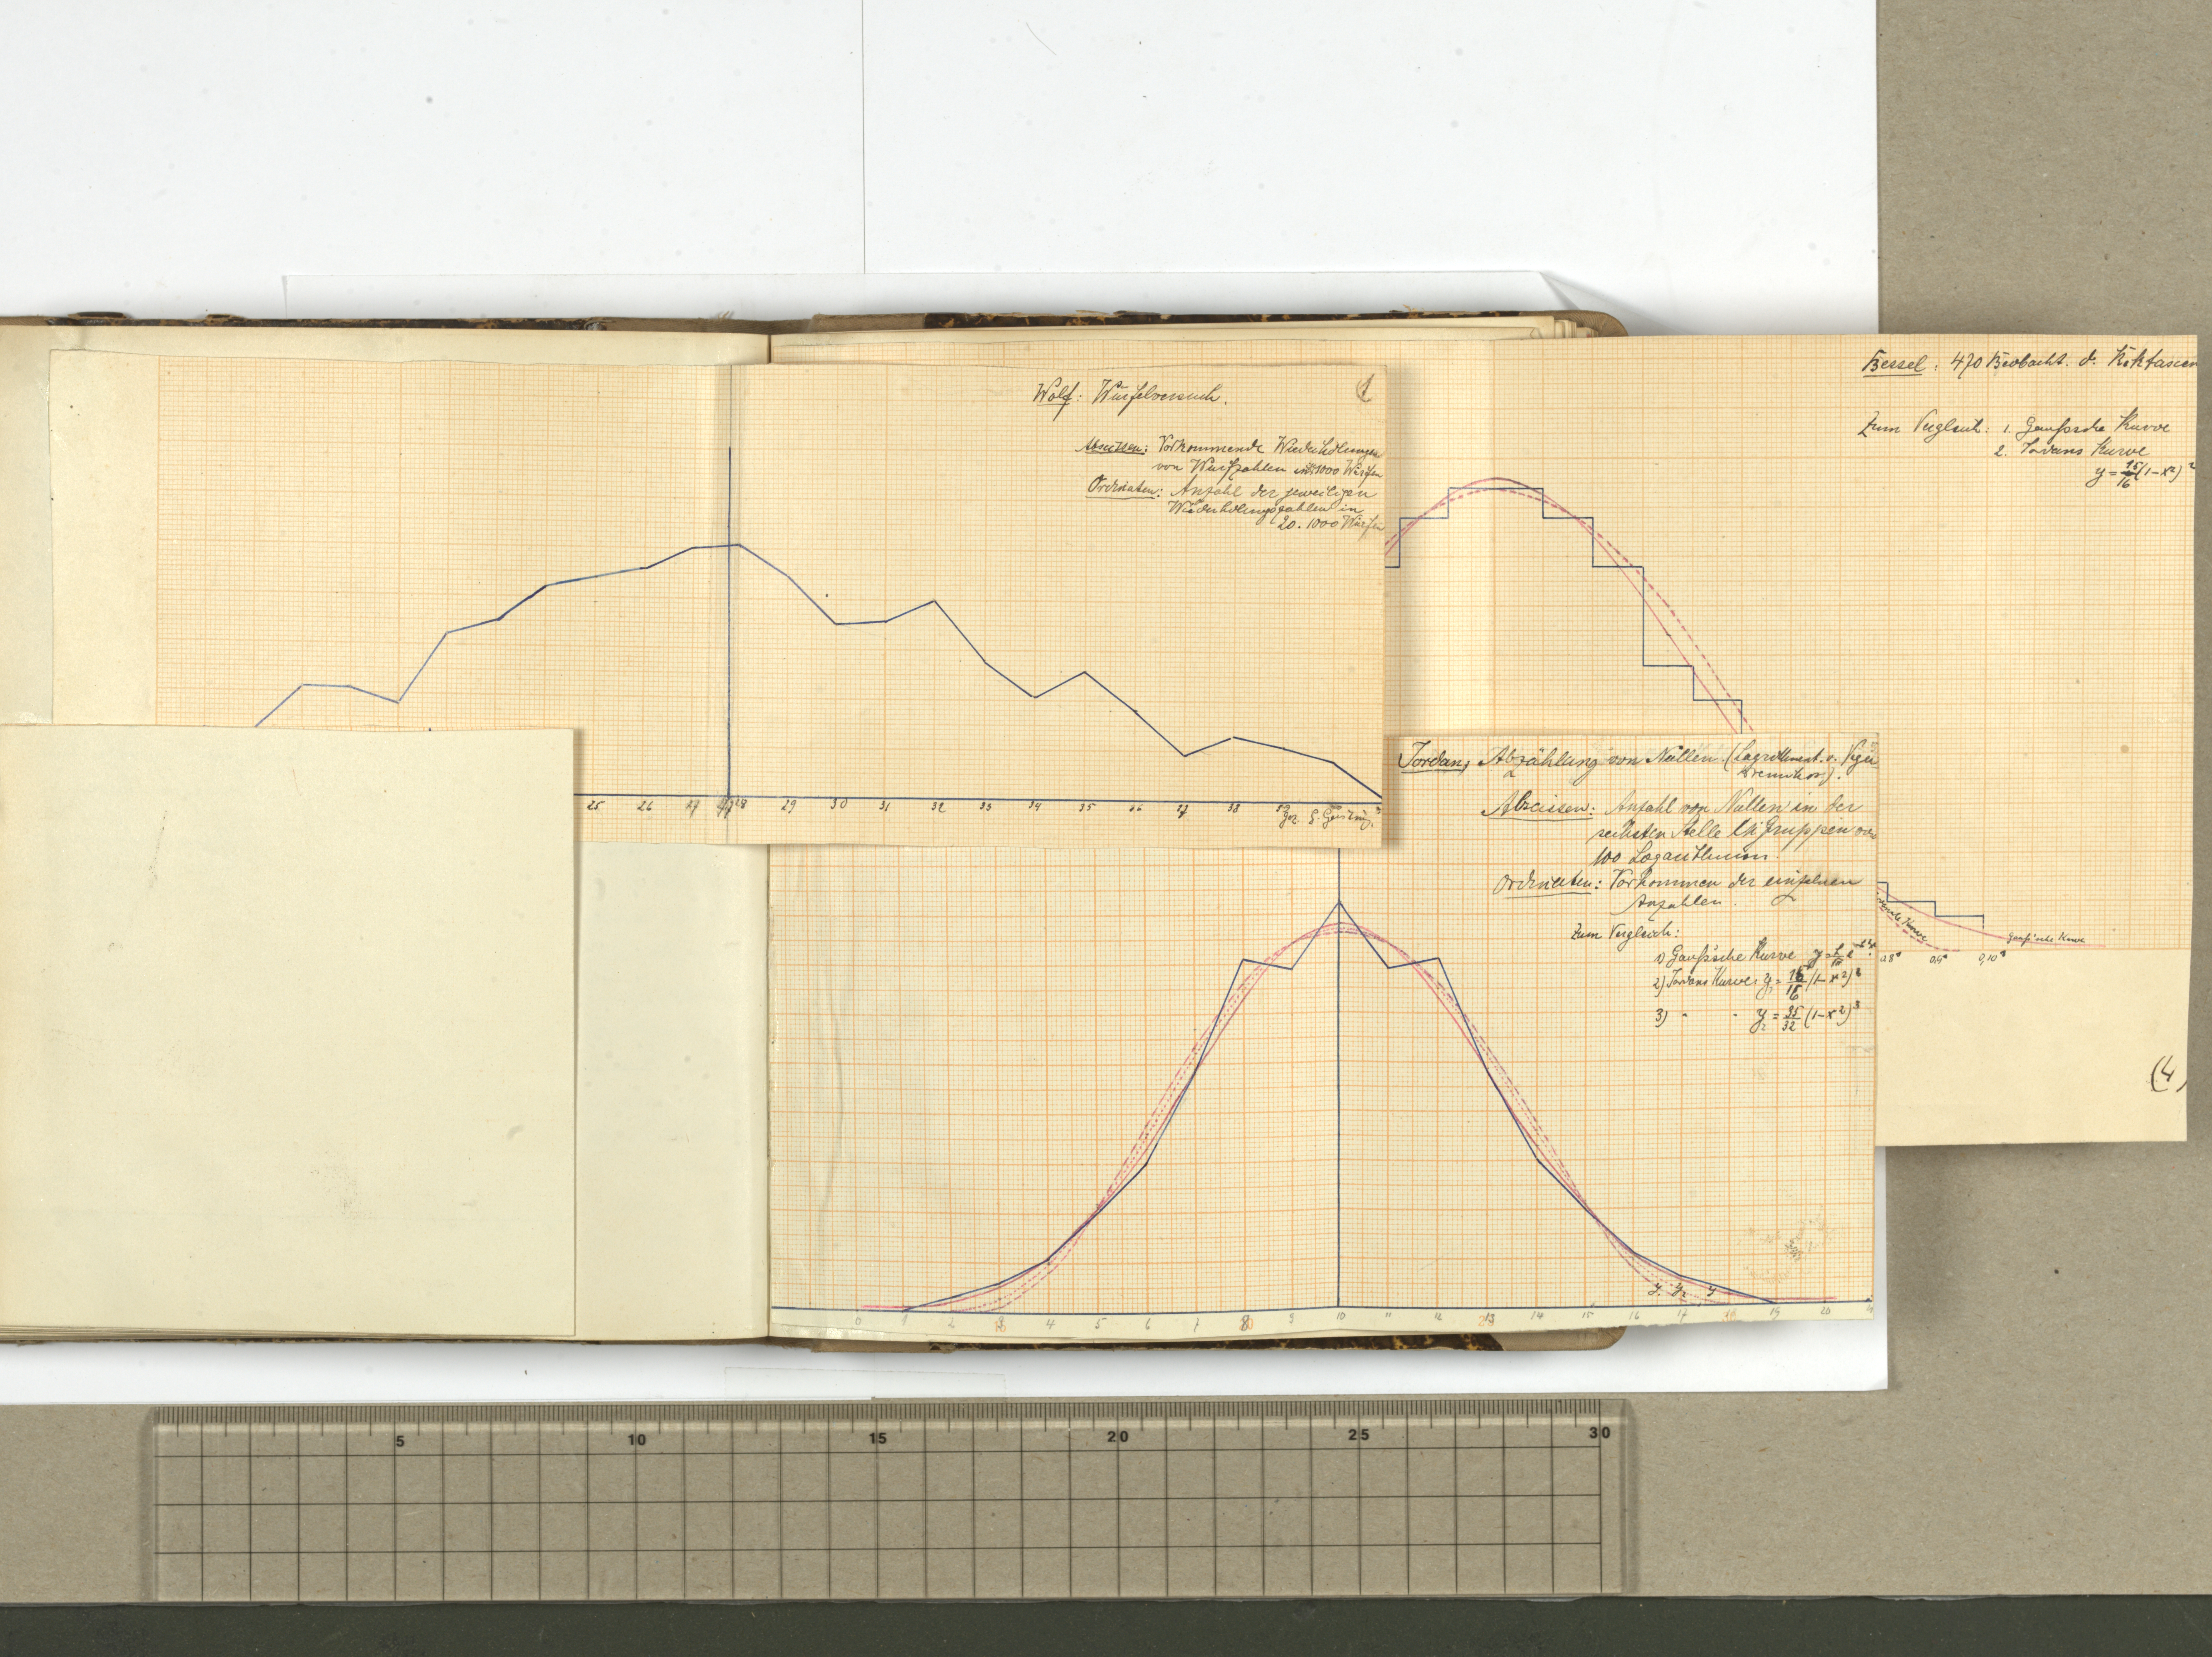 Wolf: Würfelversuch.
1
Abscissen: Vorkommende Wiederholungen
von Wurfzahlen in 1000 Würfen
Ordinaten: Anzahl der jeweiligen
Wiederholungszahlen in
20.1000 Würfen
25 26 27 28 29 30 31 32 33 34 35 36 37 38 39
gez. G.
Bessel: 470 Beobacht. d. Rektascen
Zum Vergleich: 1. Gaußsche Kurve
2. Jordans Kurve
y = 15/16 (1-x²)²
Kurve
Gauß'sche Kurve
0,8" 0,9" 0,10"
(4)
Jordan, Abzählung von Nullen. (Logarithment. v. Vega
Bremiker).
Abscissen: Anzahl von Nullen in der
sechsten Stelle bei Gruppen von
100 Logarithmen.
Ordinaten: Vorkommen der einzelnen
Anzahlen.
Zum Vergleich:
1) Gaußsche Kurve y =
2) Jordans Kurve: y₁ = 15/16 (1-x²)²
3) " " y₂ = 35/32 (1-x²)³
y₁ y₂ y
0 1 2 3 4 5 6 7 8 9 10 11 12 13 14 15 16 17 18 19 20
5 10 15 20 25 30